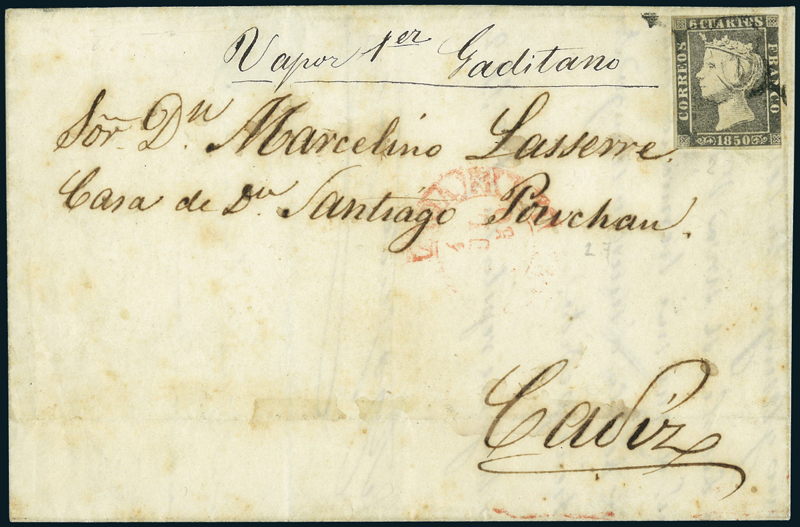 Vapor 1er Gaditano
6 CUARTOS
CORREOS
FRANCO
1850
Sōr. Dn Marcelino Lasserre.
Casa de Dn Santiago Pouchau.
27
Cadiz